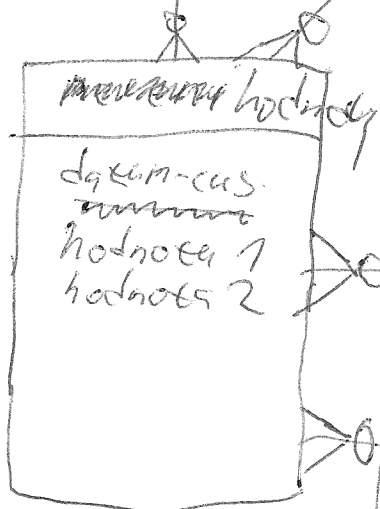 hodnoty
datum-cas
hodnota 1
hodnota 2